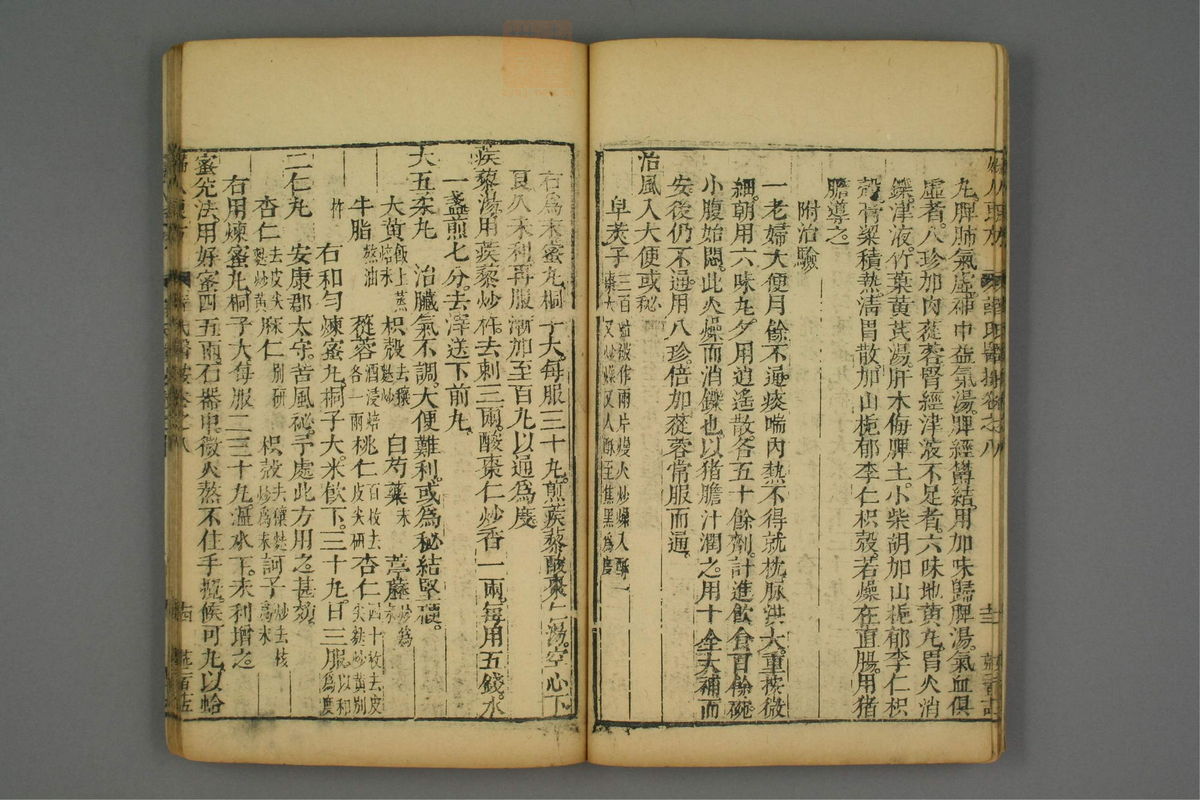 丸脾肺氣虛補中益氣湯脾經鬱結用加味歸脾湯氣血俱
虛者八珍加肉蓯蓉腎經津液不足者六味地黄丸胃火消
鑠津液竹葉黄芪湯肝木侮脾土小柴胡加山梔郁李仁枳
殼膏粱積熱清胃散加山梔郁李仁枳殼若燥在直腸用猪
膽導之
附治驗
一老婦大便月餘不通痰喘内熱不得就枕脉洪大重按微
細朝用六味丸夕用逍遥散各五十餘劑計進飲食百餘碗
小腹始悶此火燥而消鑠也以猪膽汁潤之用十全大補而
安後仍不通用八珍倍加蓯蓉常服而通
治風入大便或秘
皁莢子 三百粒破作兩片慢火炒燥入酥一棗大又炒燥又入酥至焦黑爲度
右爲末蜜丸桐子大每服三十丸煎蒺藜酸棗仁湯空心下
良久未利再服漸加至百丸以通爲度
蒺藜湯用蒺藜炒杵去刺三兩酸棗仁炒香一兩每用五錢水
一盞煎七分去滓送下前丸
大五柔丸 治臟氣不調大便難利或爲秘結堅硬
大黄 飯上蒸焙末 枳殼 去穰麩炒 白芍藥 末 葶藶 炒爲末
牛脂 熬油 蓯蓉 酒浸焙各一兩 桃仁 百枚去皮尖研 杏仁 四十枚去皮尖麩炒黄别
右和勻煉蜜丸桐子大米飲下三十丸日三服以和爲度
二仁丸 安康郡太守苦風秘予處此方用之甚效
杏仁 去皮尖麩炒黄 麻仁 别研 枳殼 去穰麩炒爲末 訶子 炒去核爲末
右用煉蜜丸桐子大每服二三十丸溫水下未利增之
蜜兌法用好蜜四五兩石器中微火熬不住手攪候可丸以蛤